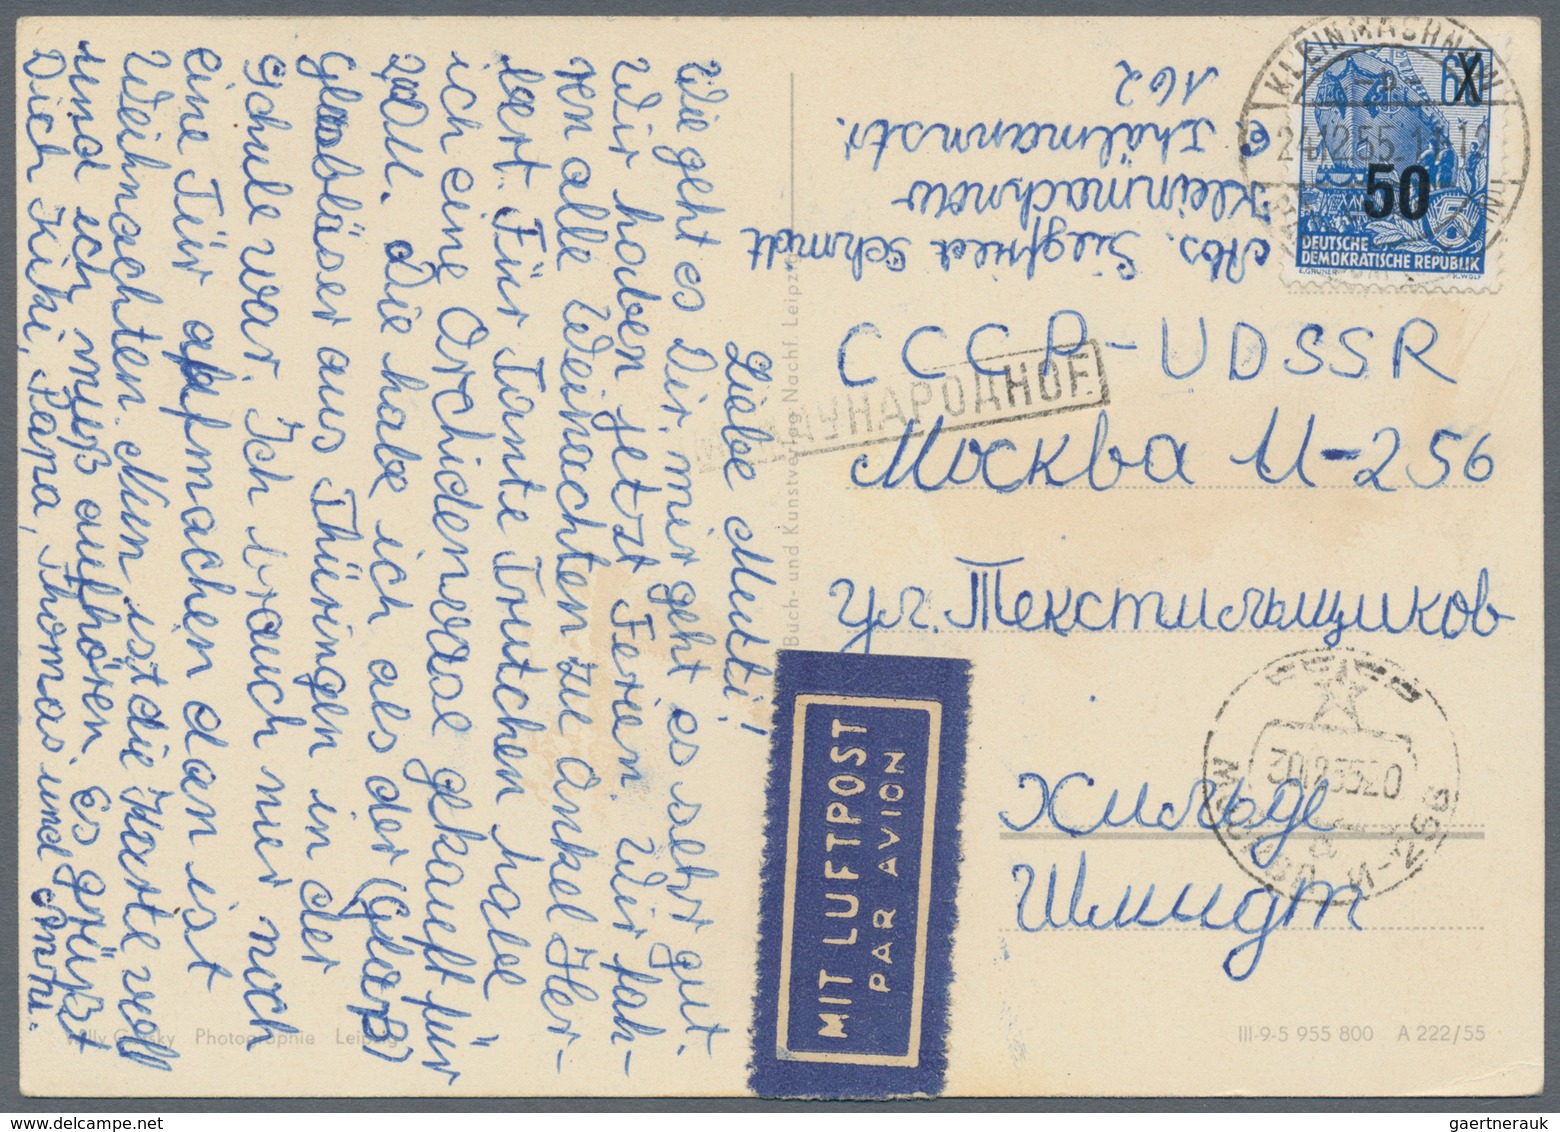 Liebe Mutti!
Wie geht es Dir, mir geht es sehr gut.
Wir haben jetzt Ferien. Wir fah-
ren alle Weinachten zu Onkel Her-
bert. Für Tante Trutchen habe
ich eine Orchideenvase gekauft für
Die habe ich als der (Glaß)
Glasbläser aus Thüringen in der
Schule war. Ich brauch nur noch
eine Tür aufmachen dan ist
Weihnachten. Nun ist die Karte voll
und ich muß aufhören. Es grüßt
Dich Kiki, Papa, Thomas und Omi.
Abs. Siegfried Schmidt
Kleinmachnow
Thälmannstr.
162
KLEINMACHNOW
24.12.55.11-12
60
50
DEUTSCHE
DEMOKRATISCHE REPUBLIK
E.GRUNER
K.WOLF
СССР - UDSSR
МЕЖДУНАРОДНОЕ
Москва И-256
ул. Текстильщиков
Хильде
Шмидт
МОСКВА И-256
30.12.55.20
MIT LUFTPOST
PAR AVION
Buch- und Kunstverlag Nachf. Leipzig
Photographie Leipzig
III-9-5 955 800 A 222/55
gaertnerauk